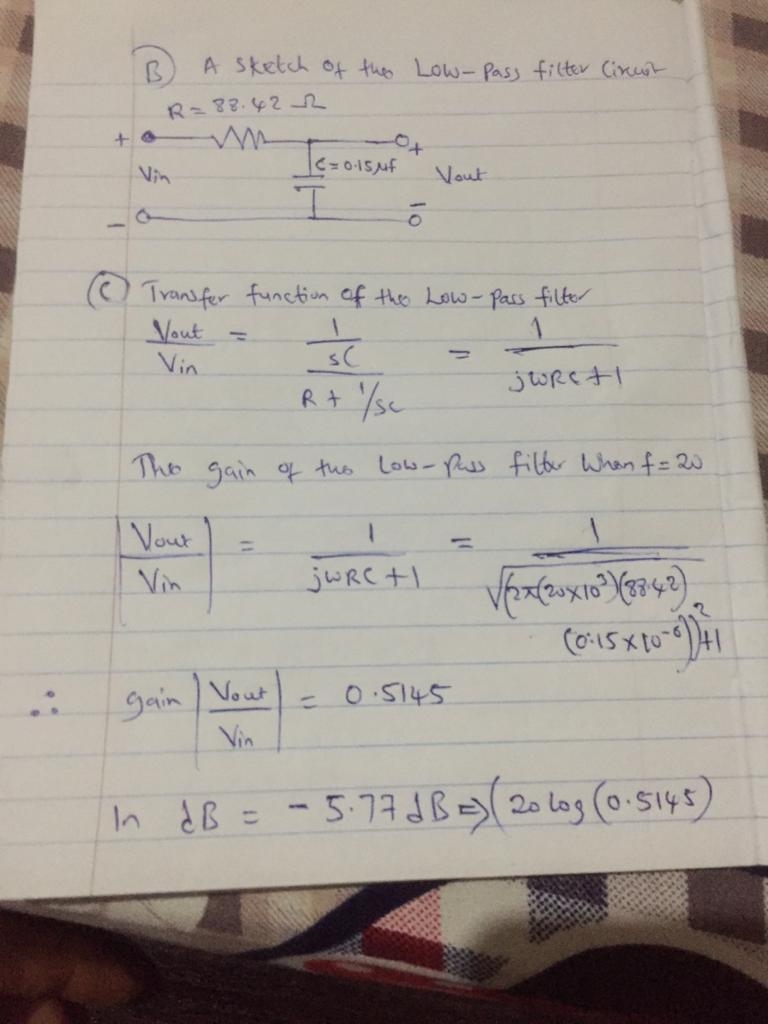 B) A sketch of the Low-Pass filter Circuit
R = 88.42 Ω
+ +
C = 0.15 μf
Vin Vout
- -
(C) Transfer function of the Low-Pass filter
Vout/Vin = (1/sC)/(R + 1/sc) = 1/(jωRC + 1)
The gain of the Low-Pass filter When f = 20
|Vout/Vin| = 1/(jωRC + 1) = 1/√(2π(20×10³)(88.42)
(0.15×10⁻⁶))² + 1
∴ gain |Vout/Vin| = 0.5145
In dB = -5.77 dB ⇒ (20 log (0.5145)